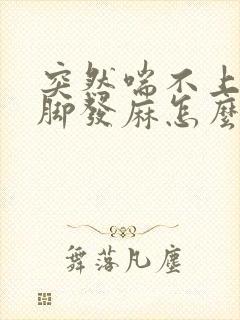 突然喘不上
脚發麻怎麼
舞落凡塵